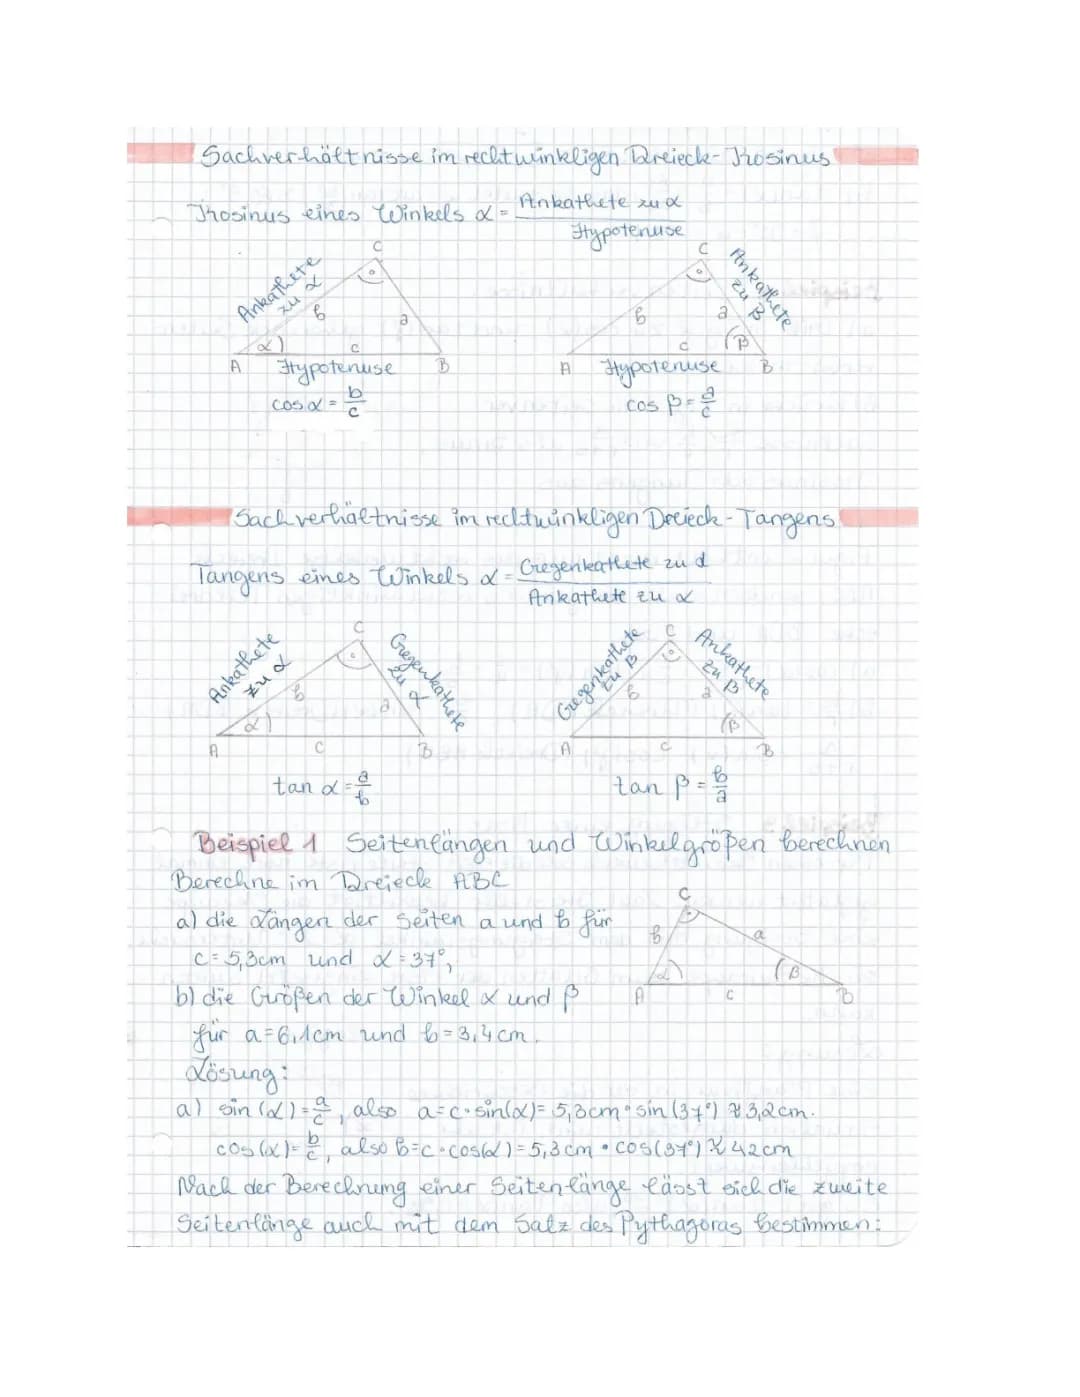 Sachverhältnisse im rechtwinkligen Dreieck - Kosinus
Kosinus eines Winkels α = Ankathete zu α
Hypotenuse
C
C
Ankathete
zu α
Ankathete
zu β
b
a
b
a
α
c
c
β
A
Hypotenuse
B
A
Hypotenuse
B
cos α = b/c
cos β = a/c
Sachverhältnisse im rechtwinkligen Dreieck - Tangens
Tangens eines Winkels α = Gegenkathete zu α
Ankathete zu α
C
C
Ankathete
zu α
Gegenkathete
zu α
Gegenkathete
zu β
Ankathete
zu β
b
a
b
a
α
β
A
c
B
A
c
B
tan α = a/b
tan β = b/a
Beispiel 1 Seitenlängen und Winkelgrößen berechnen
Berechne im Dreieck ABC
a) die Längen der Seiten a und b für
c = 5,3cm und α = 37°,
b) die Größen der Winkel α und β
für a = 6,1cm und b = 3,4cm.
C
b
a
α
β
A
c
B
Lösung:
a) sin(α) = a/c, also a = c · sin(α) = 5,3cm · sin(37°) ≈ 3,2cm.
cos(α) = b/c, also b = c · cos(α) = 5,3cm · cos(37°) ≈ 4,2cm
Nach der Berechnung einer Seitenlänge lässt sich die zweite
Seitenlänge auch mit dem Satz des Pythagoras bestimmen: